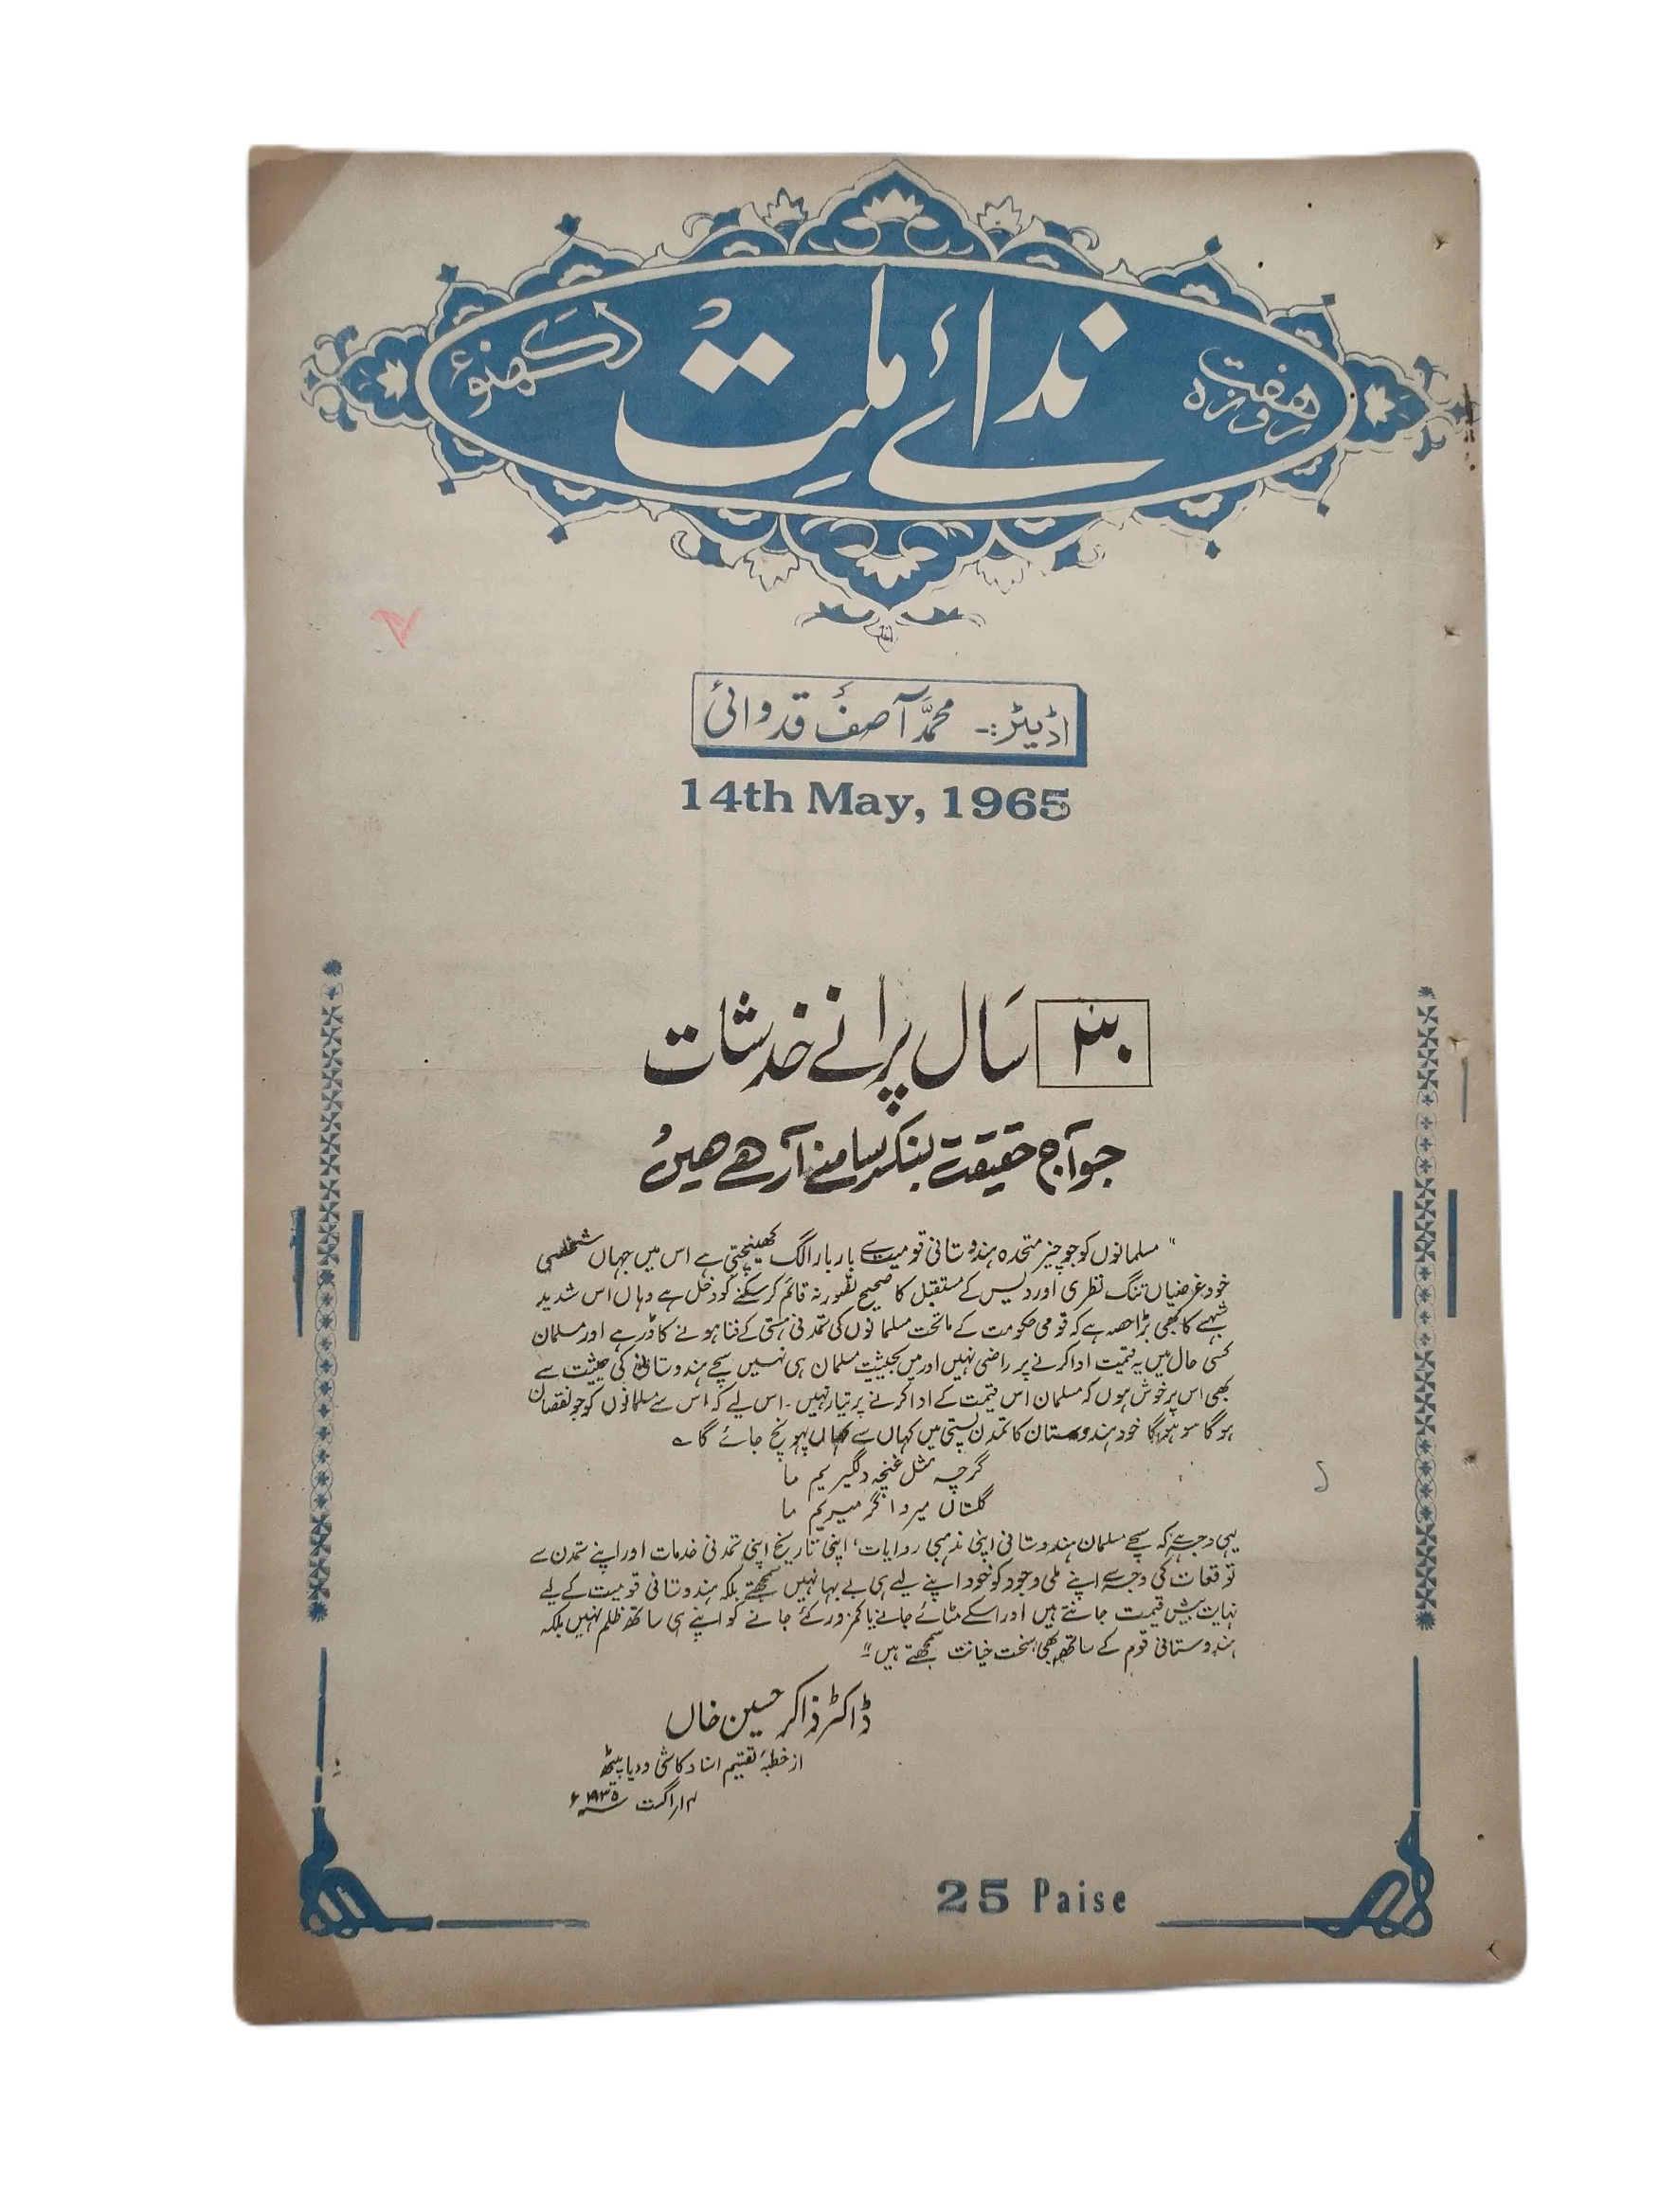 ہفت روزہ
ندائے ملت
لکھنؤ
اڈیٹر:- محمد آصف قدوائی
14th May, 1965
۳۰ سال پرانے خدشات
جو آج حقیقت بنکر سامنے آرہے ہیں
"مسلمانوں کو جو چیز متحدہ ہندوستانی قومیت سے بار بار الگ کھینچتی ہے اس میں جہاں شخصی
خود غرضیاں تنگ نظری اور دیس کے مستقبل کا صحیح تصور نہ قائم کر سکنے کو دخل ہے وہاں اس شدید
شبہے کا بھی بڑا حصہ ہے کہ قومی حکومت کے ماتحت مسلمانوں کی تمدنی ہستی کے فنا ہونے کا ڈر ہے اور مسلمان
کسی حال میں یہ قیمت ادا کرنے پر راضی نہیں اور میں بحیثیت مسلمان ہی نہیں سچے ہندوستانی کی حیثیت سے
بھی اس پر خوش ہوں کہ مسلمان اس قیمت کے ادا کرنے پر تیار نہیں۔ اس لیے کہ اس سے مسلمانوں کو جو نقصان
ہوگا سو ہوگا خود ہندوستان کا تمدن پستی میں کہاں سے کہاں پہونچ جائے گا ؎
گرچہ مثل غنچہ دلگیریم ما
گلستاں میرد اگر میریم ما
یہی وجہ ہے کہ سچے مسلمان ہندوستانی اپنی مذہبی روایات، اپنی تاریخ اپنی تمدنی خدمات اور اپنے تمدن سے
توقعات کی وجہ سے اپنے ملی وجود کو خود اپنے لیے ہی بے بہا نہیں سمجھتے بلکہ ہندوستانی قومیت کے لیے
نہایت بیش قیمت جانتے ہیں اور اسکے مٹائے جانے یا کمزور کئے جانے کو اپنے ہی ساتھ ظلم نہیں بلکہ
ہندوستانی قوم کے ساتھ بھی سخت خیانت سمجھتے ہیں"
ڈاکٹر ذاکر حسین خاں
از خطبۂ تقسیم اسناد کاشی ودیا پیٹھ
۱۴ اگست ۱۹۳۵ء
25 Paise